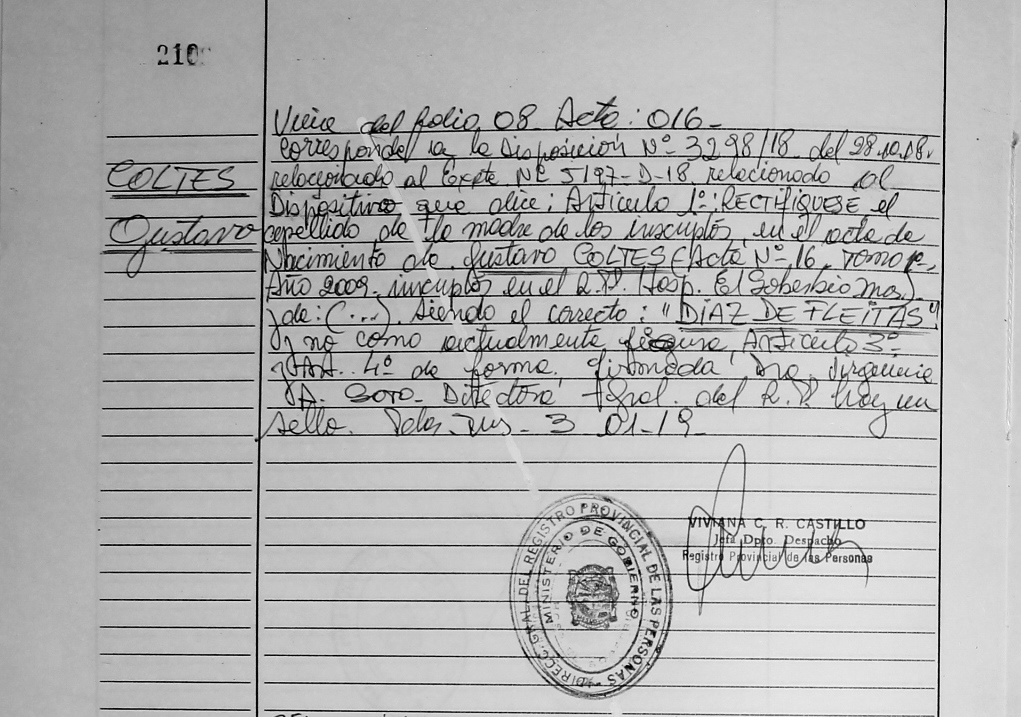 210
Viene del folio 08 Acta: 016-
Corresponde a la Disposición Nº 3298/18 del 28.10.18.
COLTES
relacionado al Expte Nº 5197-D-18 relacionado al
Dispositivo que dice; Articulo 1º: RECTIFIQUESE el
Gustavo
apellido de la madre de los inscuptos, en el acta de
Nacimiento de Gustavo COLTES (Acta Nº 16 Tomo
Año 2009- inscuptos en el R.P. Hosp. El Soberbio Mns.)
de: (...). Siendo el correcto: "DIAZ DE FLEITAS"
y no como actualmente figura, Articulo 3º
y Art. 4º de forma. firmada Dra.
A. Soto- Directora Gral. del R.P. hay un
sello. Pdas. Mns- 3 01-19-
VIVIANA C. R. CASTILLO
Jefa Dpto. Despacho
Registro Provincial de las Personas
DIRECC. GRAL. DEL REGISTRO PROVINCIAL DE LAS PERSONAS
MINISTERIO DE GOBIERNO